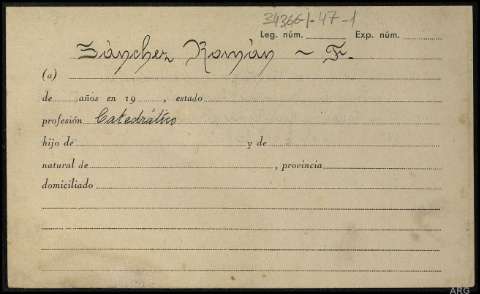 34366-1-47-1
Leg. núm. Exp. núm.
Sánchez Román ~ F.
(a)
de años en 19 , estado
profesión Catedrático
hijo de y de
natural de , provincia
domiciliado
ARG